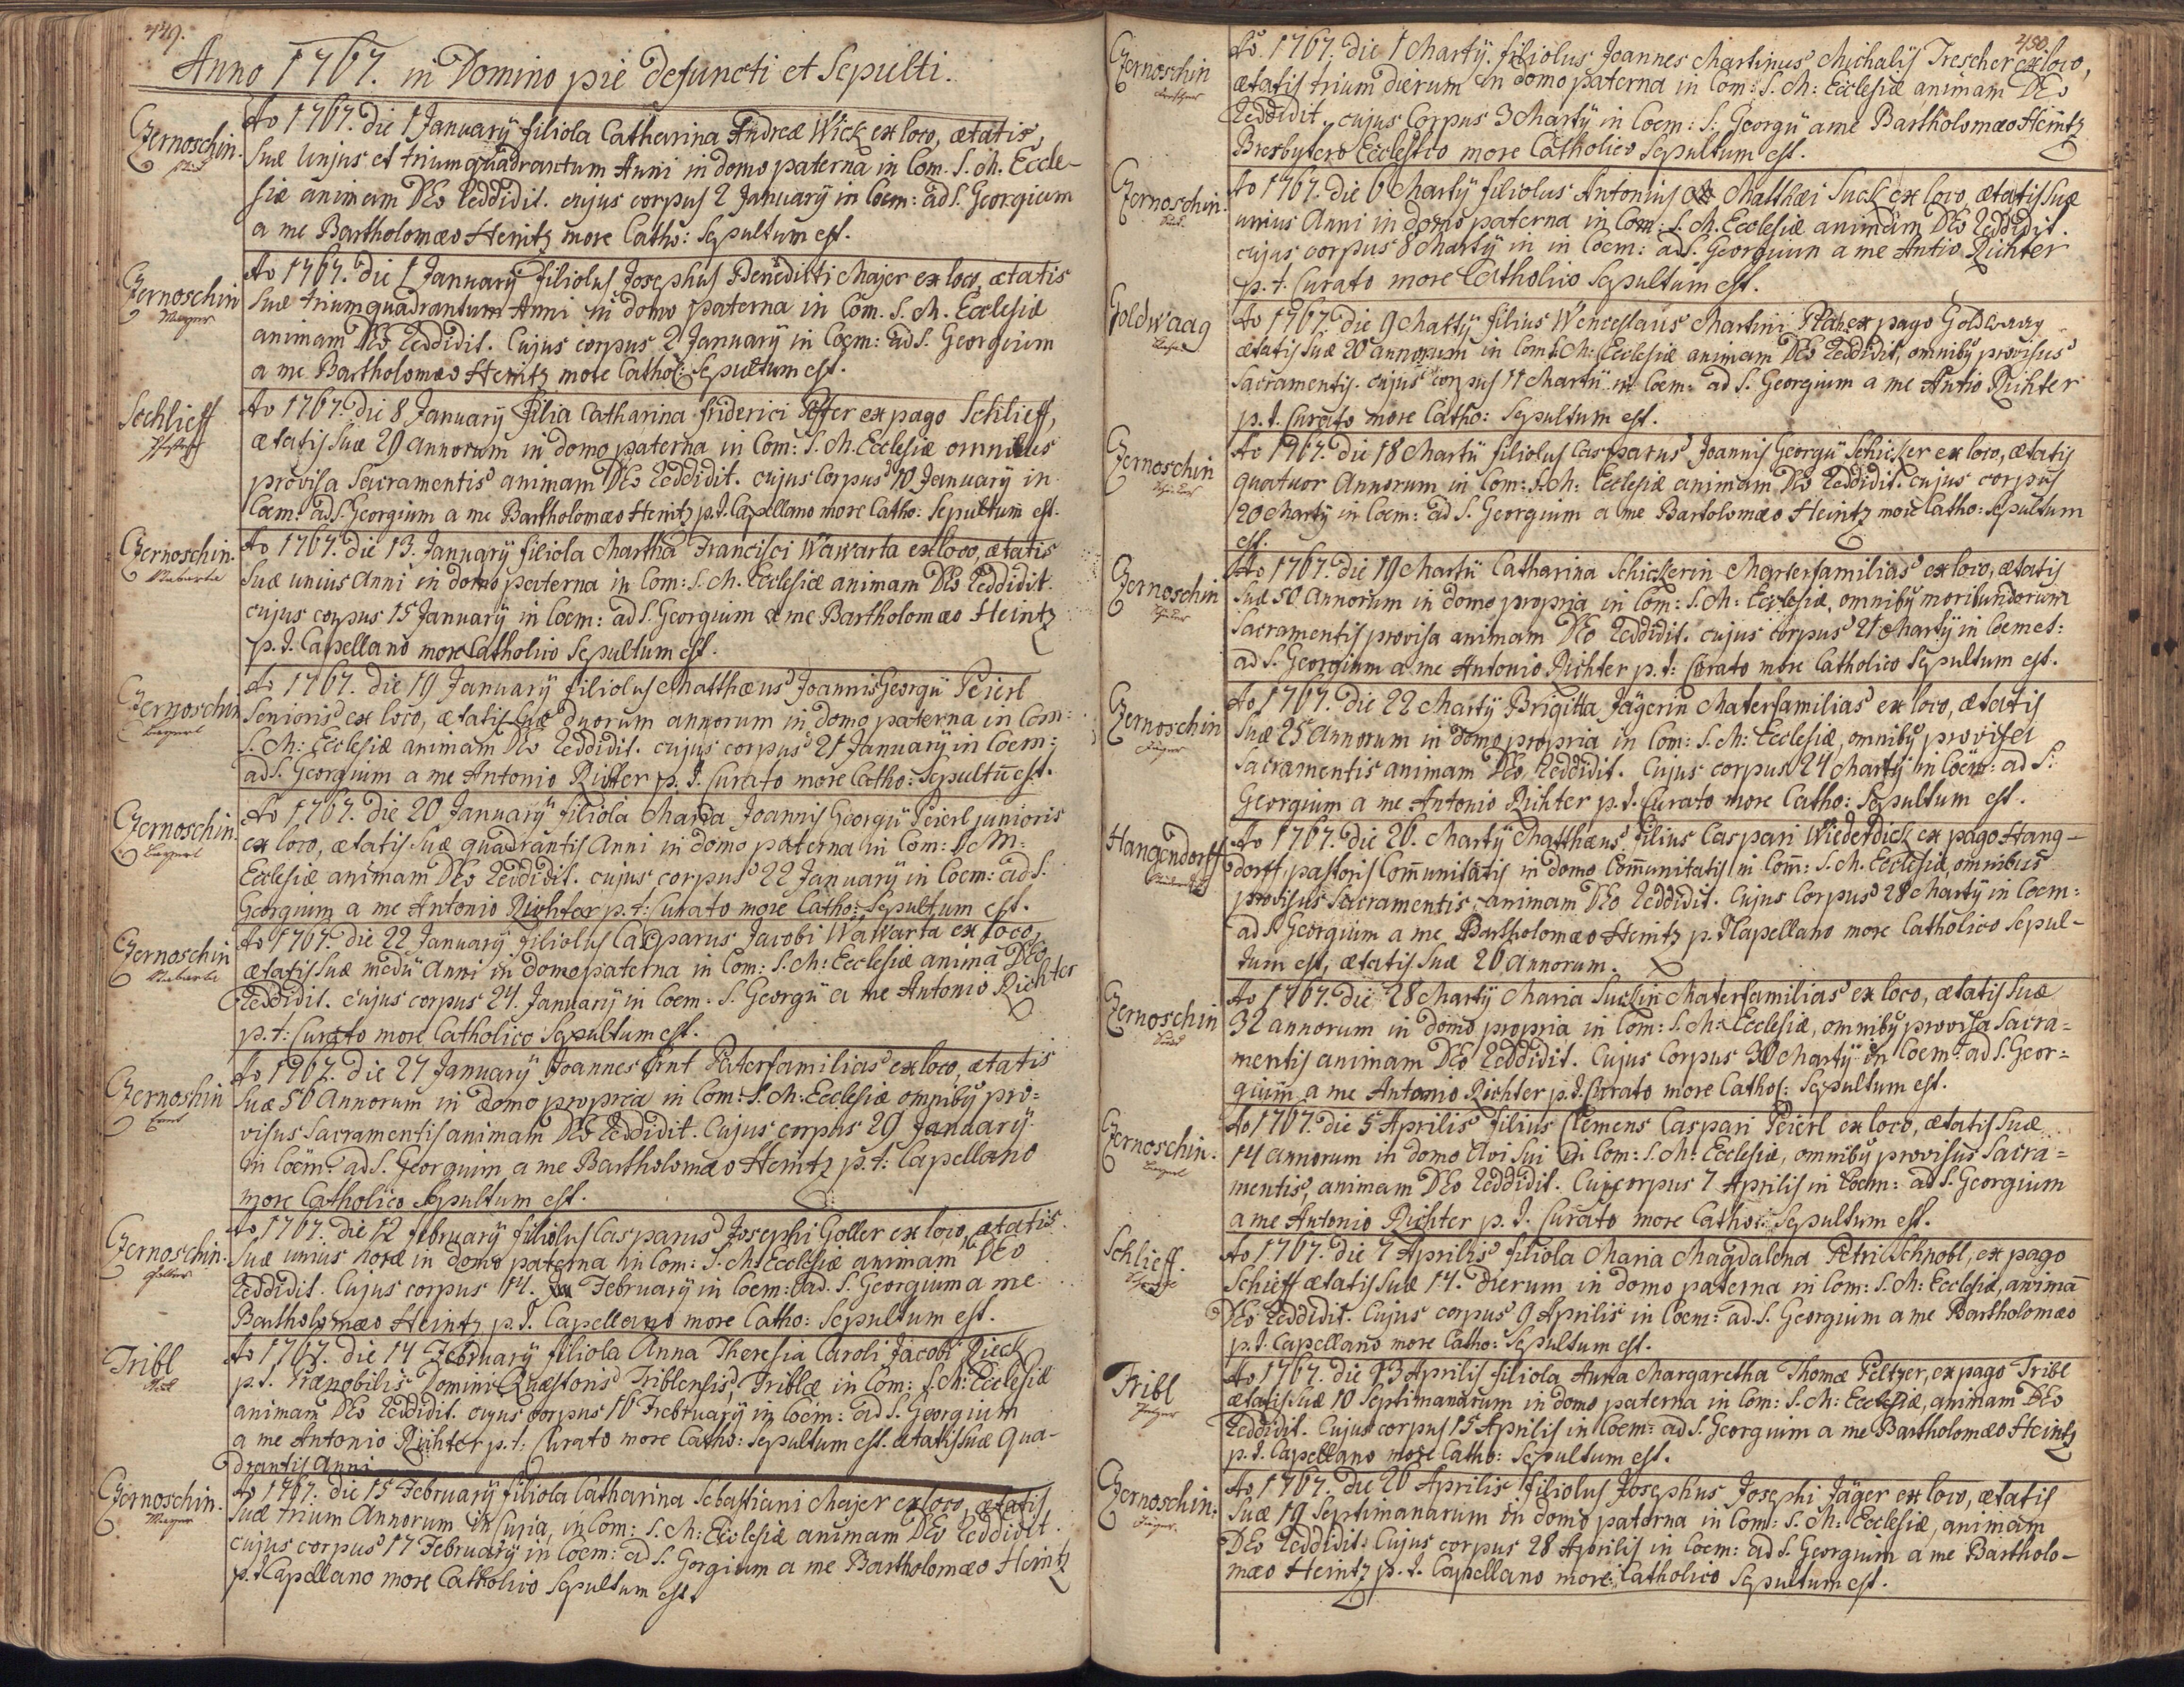 449.
Anno 1767. in Domino pie defuncti et Sepulti.
Czernoschin.
Ao 1767. die 1 Januarÿ filiola Catharina Andreæ Wick ex loco, ætatis,
Suæ Unius et trium quadrantum Anni in domo paterna in Com. S. M. Eccle-
siæ animam DEo Reddidit. cujus corpus 2 Januarÿ in Coem: ad S. Georgium
a me Bartholomæo Heintz more Catho: Sepultum est.
Czernoschin
Mayer
Ao 1767. die 1 Januarÿ filiolus Josephus Benedicti Majer ex loco, ætatis
Suæ trium quadrantum Anni in domo paterna in Com. S. M. Ecclesiæ
animam DEo Reddidit. Cujus corpus 2 Januarÿ in Coem: ad S. Georgium
a me Bartholomæo Heintz more Cathol: Sepultum est.
Schlieff
Ao 1767. die 8 Januarÿ filia Catharina friderici ex pago Schlieff,
ætatis Suæ 29 annorum in domo paterna in Com: S. M. Ecclesiæ omnibus
provisa Sacramentis animam DEo Reddidit. cujus Corpus 10 Januarÿ in
Coem: ad S. Georgium a me Bartholomæo Heintz p. t. Capellano more Catho: Sepultum est.
Czernoschin.
Nabarta
Ao 1767. die 13. Januarÿ filiola Martha Francisci Wawarta ex loco, ætatis
Suæ unius Anni in domo paterna in Com: S. M. Ecclesiæ animam DEo Reddidit.
cujus corpus 15 Januarÿ in Coem: ad S. Georgium a me Bartholomæo Heintz
p. t. Capellano more Catholico Sepultum est.
Czernoschin
Beyerl
Ao 1767. die 19 Januarÿ filiolus Matthæus Joannis Georgÿ Peierl
Senioris ex loco, ætatis Suæ duorum annorum in domo paterna in Com:
S. M: Ecclesiæ animam DEo Reddidit. cujus corpus 21 Januarÿ in Coem:
ad S. Georgium a me Antonio Richter p. t. Curato more Catho: Sepultū est.
Czernoschin.
Beyerl
Ao 1767. die 20 Januarÿ filiola Maria Joannis Georgÿ Peierl junioris
ex loco, ætatis Suæ quadrantis Anni in domo paterna in Com: S. M:
Ecclesiæ animam DEo Reddidit. cujus corpus 22 Januarÿ in Coem: ad S.
Georgium a me Antonio Richter p. t: Curato more Catho: Sepultum est.
Czernoschin
Nabarta
Ao 1767. die 22 Januarÿ filiolus Casparus Jacobi Wawarta ex loco,
ætatis Suæ medÿ Anni in domo paterna in Com: S. M: Ecclesiæ anima DEo
Reddidit. cujus corpus 24. Januarÿ in Coem: S. Georgÿ a me Antonio Richter
p. t: Curato more Catholico Sepultum est.
Czernoshin
Ernt
Ao 1767. die 27 Januarÿ Joannes Ernt Paterfamilias ex loco, ætatis
Suæ 50 Annorum in domo propria in Com: S. M: Ecclesiæ omnibȳ pro=
visus Sacramentis animam DEo Reddidit. Cujus corpus 29 Januarÿ
in Coem: ad S. Georgium, a me Bartholomæo Heintz p. t: Capellano
more Catholico Sepultum est.
Czernoschin.
Goller
Ao 1767. die 12 february filiolus Casparus Josephi Goller ex loco, ætatis
Suæ unius horæ in domo paterna in Com: S. M: Ecclesiæ animam DEo
Reddidit. Cujus corpus 14. February in Coem: ad. S. Georgium a me
Bartholomæo Heintz p. t. Capellano more Catho: Sepultum est.
Tribl
Ao 1767. die 14 Februarÿ filiola Anna Theresia Caroli Jacobi Pieck
p. t. Prænobilis Domini Quæstoris Triblensis, Triblæ in Com: S. M: Ecclesiæ
animam DEo Reddidit. cujus corpus 16 Februarÿ in Coem: ad S. Georgium
a me Antonio Richter p. t: Curato more Catho: Sepultum est. ætatis Suæ qua-
drantis Anni
Czernoschin.
Mayer
Ao 1767. die 15 Februarÿ filiola Catharina Sebastiani Majer ex loco, ætatis
Suæ trium Annorum in Curia, in Com: S. M: Ecclesiæ animam DEo Reddidit.
cujus corpus 17 Februarÿ in Coem: ad S. Gorgium a me Bartholomæo Heintz
p. t. Capellano more Catholico Sepultum est.
450.
Czernoschin
Ao. 1767. die 1 Martÿ. filiolus Joannes Martinus Michalÿs Trescher ex loco,
ætatis trium dierum in domo paterna in Com: S. M: Ecclesiæ animam DEo
Reddidit, cujus Corpus 3 Martÿ in Coem: S. Georgÿ a me Bartholomæo Heintz
Presbytero Ecclestico more Catholico Sepultum est.
Czernoschin.
Ao 1767. die 6 Martÿ filiolus Antonius Matthæi Suck ex loco, ætatis Suæ
unius Anni in domo paterna in Com: S. M. Ecclesiæ animam DEo Reddidit.
cujus corpus 8 Martÿ in in Coem: ad S. Georgium a me Antio Richter
p. t. Curato more Catholico Sepultum est.
Goldwaag
Ao 1767. die 9 Martÿ filius Wenceslaus Martini ex pago Goldwaag
ætatis Suæ 20 annorum in Com S. M: Ecclesiæ animam DEo Reddidit, omnibȳ provisus
Sacramentis. cujus corpus 11 Martii in Coem: ad S. Georgium a me Antio Richter
p. t. Curato more Catho: Sepultum est.
Czernoschin
Ao 1767. die 18 Martii filiolus Casparus Joannis Georgÿ Schicker ex loco, ætatis
quatuor Annorum in Com: S. M: Ecclesiæ animam DEo Reddidit. cujus corpus
20 Martÿ in Coem: ad S. Georgium a me Bartolomæo Heintz more Catho: Sepultum
est.
Czernoschin
Ao 1767. die 19 Martii Catharina Schickerin Materfamilias ex loco, ætatis
Suæ 50 Annorum in domo propria in Com: S. M: Ecclesiæ, omnibȳ moribundorum
Sacramentis provisa animam DEo Reddidit. cujus corpus 21 Martÿ in Coemet:
ad S. Georgium a me Antonio Richter p. t: Curato more Catholico Sepultum est.
Czernoschin
Ao 1767. die 22 Martÿ Brigitta Jägerin Materfamilias ex loco, ætatis
Suæ 25 Annorum in domo propria in Com: S. M: Ecclesiæ, omnibȳ provisa
Sacramentis animam DEo Reddidit. Cujus corpus 24 Martÿ in Coem: ad S:
Georgium a me Antonio Richter p. t. Curato more Catho: Sepultum est.
Hangendorff
Ao 1767. die 26. Martÿ Matthæus filius Caspari Wiederdick ex pago Hang-
dorff, pastoris Com̄unitatis in domo Com̄unitatis in Com̄: S. M. Ecclesiæ, omnibus
provisus Sacramentis, animam DEo Reddidit. Cujus Corpus 28 Martÿ in Coem:
ad S. Georgium a me Bartholomæo Heintz p. t Capellano more Catholico Sepul-
tum est, ætatis Suæ 26 Annorum.
Czernoschin
Ao 1767. die 28 Martÿ Maria Suckin Materfamilias ex loco, ætatis Suæ
32 annorum in domo propria in Com: S. M: Ecclesiæ, omnibȳ provisa Sacra=
mentis animam DEo Reddidit. Cujus Corpus 30 Martÿ in Coem: ad S. Geor=
gium a me Antonio Richter p. t. Curato more Catho: Sepultum est.
Czernoschin.
Beyerl
Ao 1767. die 5 Aprilis filius Clemens Caspari Peierl ex loco, ætatis Suæ
14 annorum in domo Avi Sui in Com: S. M: Ecclesiæ, omnibȳ provisus Sacra=
mentis, animam DEo Reddidit. Cuj corpus 7 Aprilis in Coem: ad S. Georgium
a me Antonio Richter p. t. Curato more Catho: Sepultum est.
Schlieff.
Ao 1767. die 7 Aprilis filiola Maria Magdalena Petri Schnobl, ex pago
Schieff ætatis Suæ 14. dierum in domo paterna in Com: S. M: Ecclesiæ, animā
DEo Reddidit. Cujus corpus 9 Aprilis in Coem: ad. S. Georgium a me Bartholomæo
p. t. Capellano more Catho: Sepultum est.
Tribl
Ao 1767. die 13 Aprilis filiola Anna Margaretha Thomæ Peltzer, ex pago Tribl
ætatis Suæ 10 Septimanarum in domo paterna in Com: S. M: Ecclesiæ, animam DEo
Reddidit. Cujus corpus 15 Aprilis in Coem: ad S. Georgium a me Bartholomæo Heintz
p. t. Capellano more Catho: Sepultum est.
Czernoschin.
Jäger.
Ao 1767. die 26 Aprilis filiolus Josephus Josephi Jäger ex loco, ætatis
Suæ 19 Septimanarum in domo paterna in Com: S. M: Ecclesiæ, animam
DEo Reddidit. Cujus corpus 28 Aprilis in Coem: ad S. Georgium a me Bartholo-
mæo Heintz p. t. Capellano more Catholico Sepultum est.